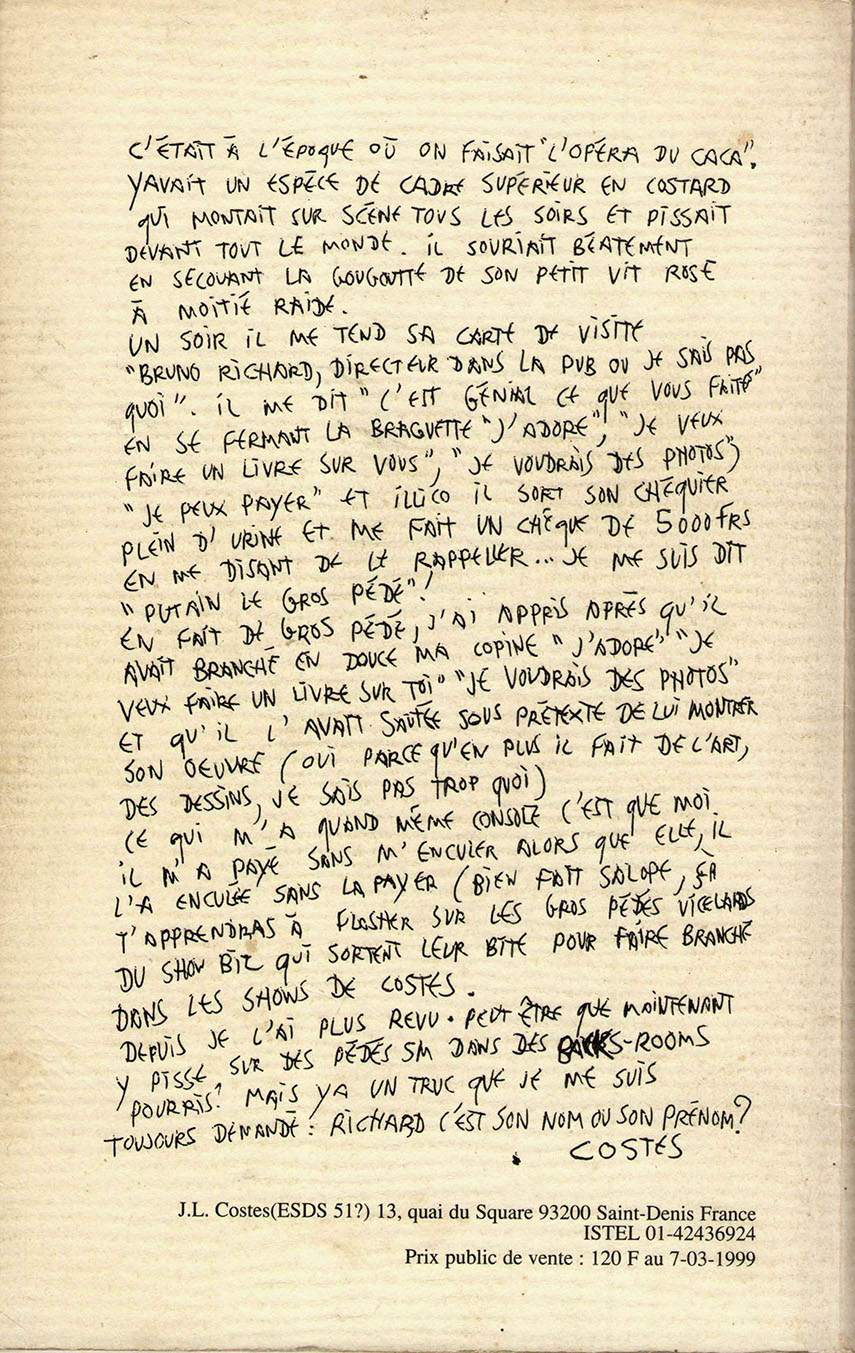 C'ÉTAIT À L'ÉPOQUE OÙ ON FAISAIT "L'OPÉRA DU CACA".
YAVAIT UN ESPÈCE DE CADRE SUPÉRIEUR EN COSTARD
QUI MONTAIT SUR SCÈNE TOUS LES SOIRS ET PISSAIT
DEVANT TOUT LE MONDE. IL SOURIAIT BÉATEMENT
EN SECOUANT LA GOUGOUTTE DE SON PETIT VIT ROSE
À MOITIÉ RAIDE.
UN SOIR IL ME TEND SA CARTE DE VISITE
"BRUNO RICHARD, DIRECTEUR DANS LA PUB OU JE SAIS PAS
QUOI". IL ME DIT "C'EST GÉNIAL CE QUE VOUS FAITE"
EN SE FERMANT LA BRAGUETTE "J'ADORE", "JE VEUX
FAIRE UN LIVRE SUR VOUS", "JE VOUDRAIS DES PHOTOS")
"JE PEUX PAYER" ET ILLICO IL SORT SON CHÉQUIER
PLEIN D'URINE ET ME FAIT UN CHÈQUE DE 5000 FRS
EN ME DISANT DE LE RAPPELLER... JE ME SUIS DIT
"PUTAIN LE GROS PÉDÉ"!
EN FAIT DE GROS PÉDÉ, J'AI APPRIS APRÈS QU'IL
AVAIT BRANCHÉ EN DOUCE MA COPINE "J'ADORE" "JE
VEUX FAIRE UN LIVRE SUR TOI" "JE VOUDRAIS DES PHOTOS"
ET QU'IL L'AVAIT SAUTÉE SOUS PRÉTEXTE DE LUI MONTRER
SON OEUVRE (OUI PARCE QU'EN PLUS IL FAIT DE L'ART,
DES DESSINS, JE SAIS PAS TROP QUOI)
CE QUI M'A QUAND MÊME CONSOLÉ C'EST QUE MOI
IL M'A PAYÉ SANS M'ENCULER ALORS QUE ELLE, IL
L'A ENCULÉE SANS LA PAYER (BIEN FAIT SALOPE, ÇA
T'APPRENDRAS À FLASHER SUR LES GROS PÉDÉS VICELARDS
DU SHOW BIZ QUI SORTENT LEUR BITE POUR FAIRE BRANCHÉ
DANS LES SHOWS DE COSTES.
DEPUIS JE L'AI PLUS REVU. PEUT ÊTRE QUE MAINTENANT
Y PISSE SUR DES PÉDÉS SM DANS DES BACKS-ROOMS
POURRIS? MAIS YA UN TRUC QUE JE ME SUIS
TOUJOURS DEMANDÉ : RICHARD C'EST SON NOM OU SON PRÉNOM?
COSTES
J.L. Costes(ESDS 51?) 13, quai du Square 93200 Saint-Denis France
ISTEL 01-42436924
Prix public de vente : 120 F au 7-03-1999